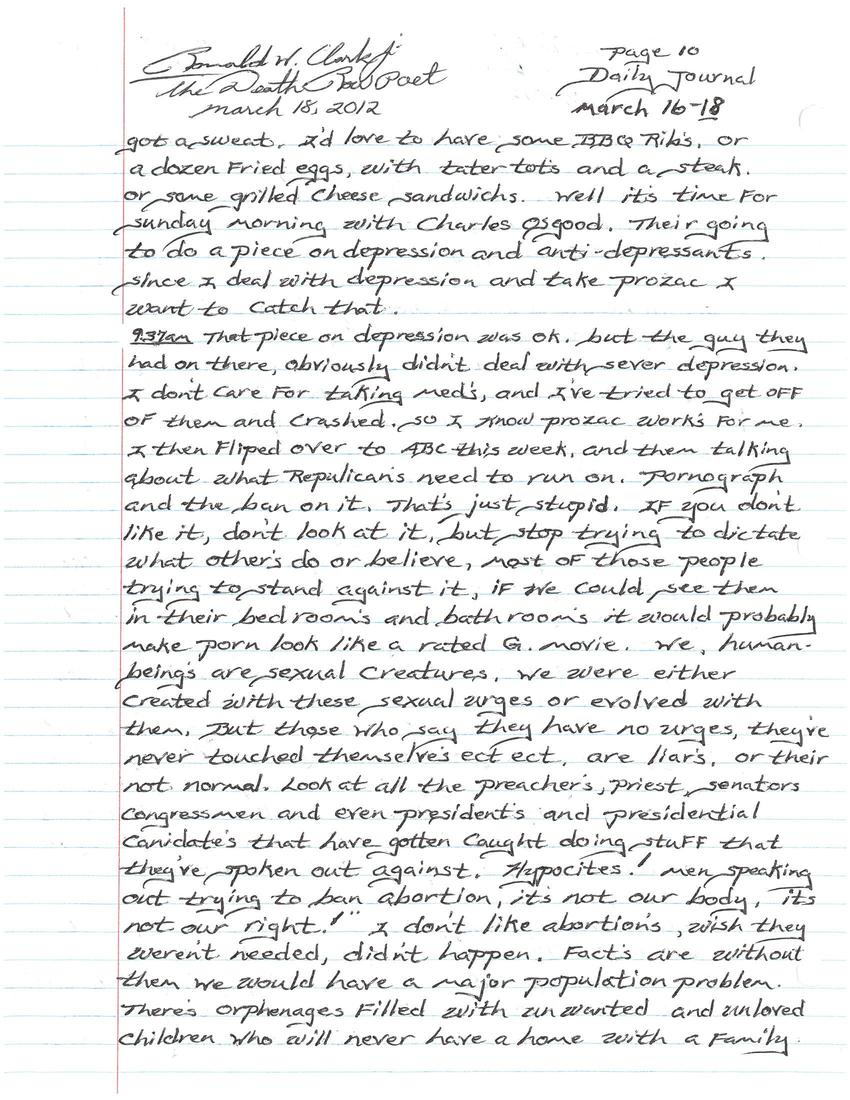 Ronald W. Clark Jr
The Death Row Poet
march 18, 2012
page 10
Daily Journal
march 16-18
got a sweat. I'd love to have some BBQ Rib's, or
a dozen Fried eggs, with tater tots and a steak.
or some grilled Cheese sandwichs. Well it's time For
sunday morning with Charles Osgood. Their going
to do a piece on depression and anti-depressants.
since I deal with depression and take prozac I
want to catch that.
9:37am That piece on depression was ok. but the guy they
had on there, obviously didn't deal with sever depression.
I don't Care For taking med's, and I've tried to get OFF
OF them and Crashed. so I know prozac work's For me.
I then Fliped over to ABC this week, and them talking
about what Repulican's need to run on. Pornograph
and the ban on it. That's just stupid. IF you don't
like it, don't look at it, but stop trying to dictate
what other's do or believe, most OF those people
trying to stand against it, iF we could see them
in their bedroom's and bathroom's it would probably
make porn look like a rated G. movie. We, human-
being's are sexual Creatures, we were either
Created with these sexual urges or evolved with
them. But those who say they have no urges, they've
never touched themselve's ect ect, are liar's, or their
not normal. Look at all the preacher's, priest, senators
Congressmen and even president's and presidential
Canidate's that have gotten Caught doing stuFF that
they've spoken out against. Hypocites! men speaking
out trying to ban abortion, it's not our body, it's
not our right!" I don't like abortion's, wish they
weren't needed, didn't happen. Fact's are without
them we would have a major population problem.
There's orphenages Filled with unwanted and unloved
Children who will never have a home with a Family.